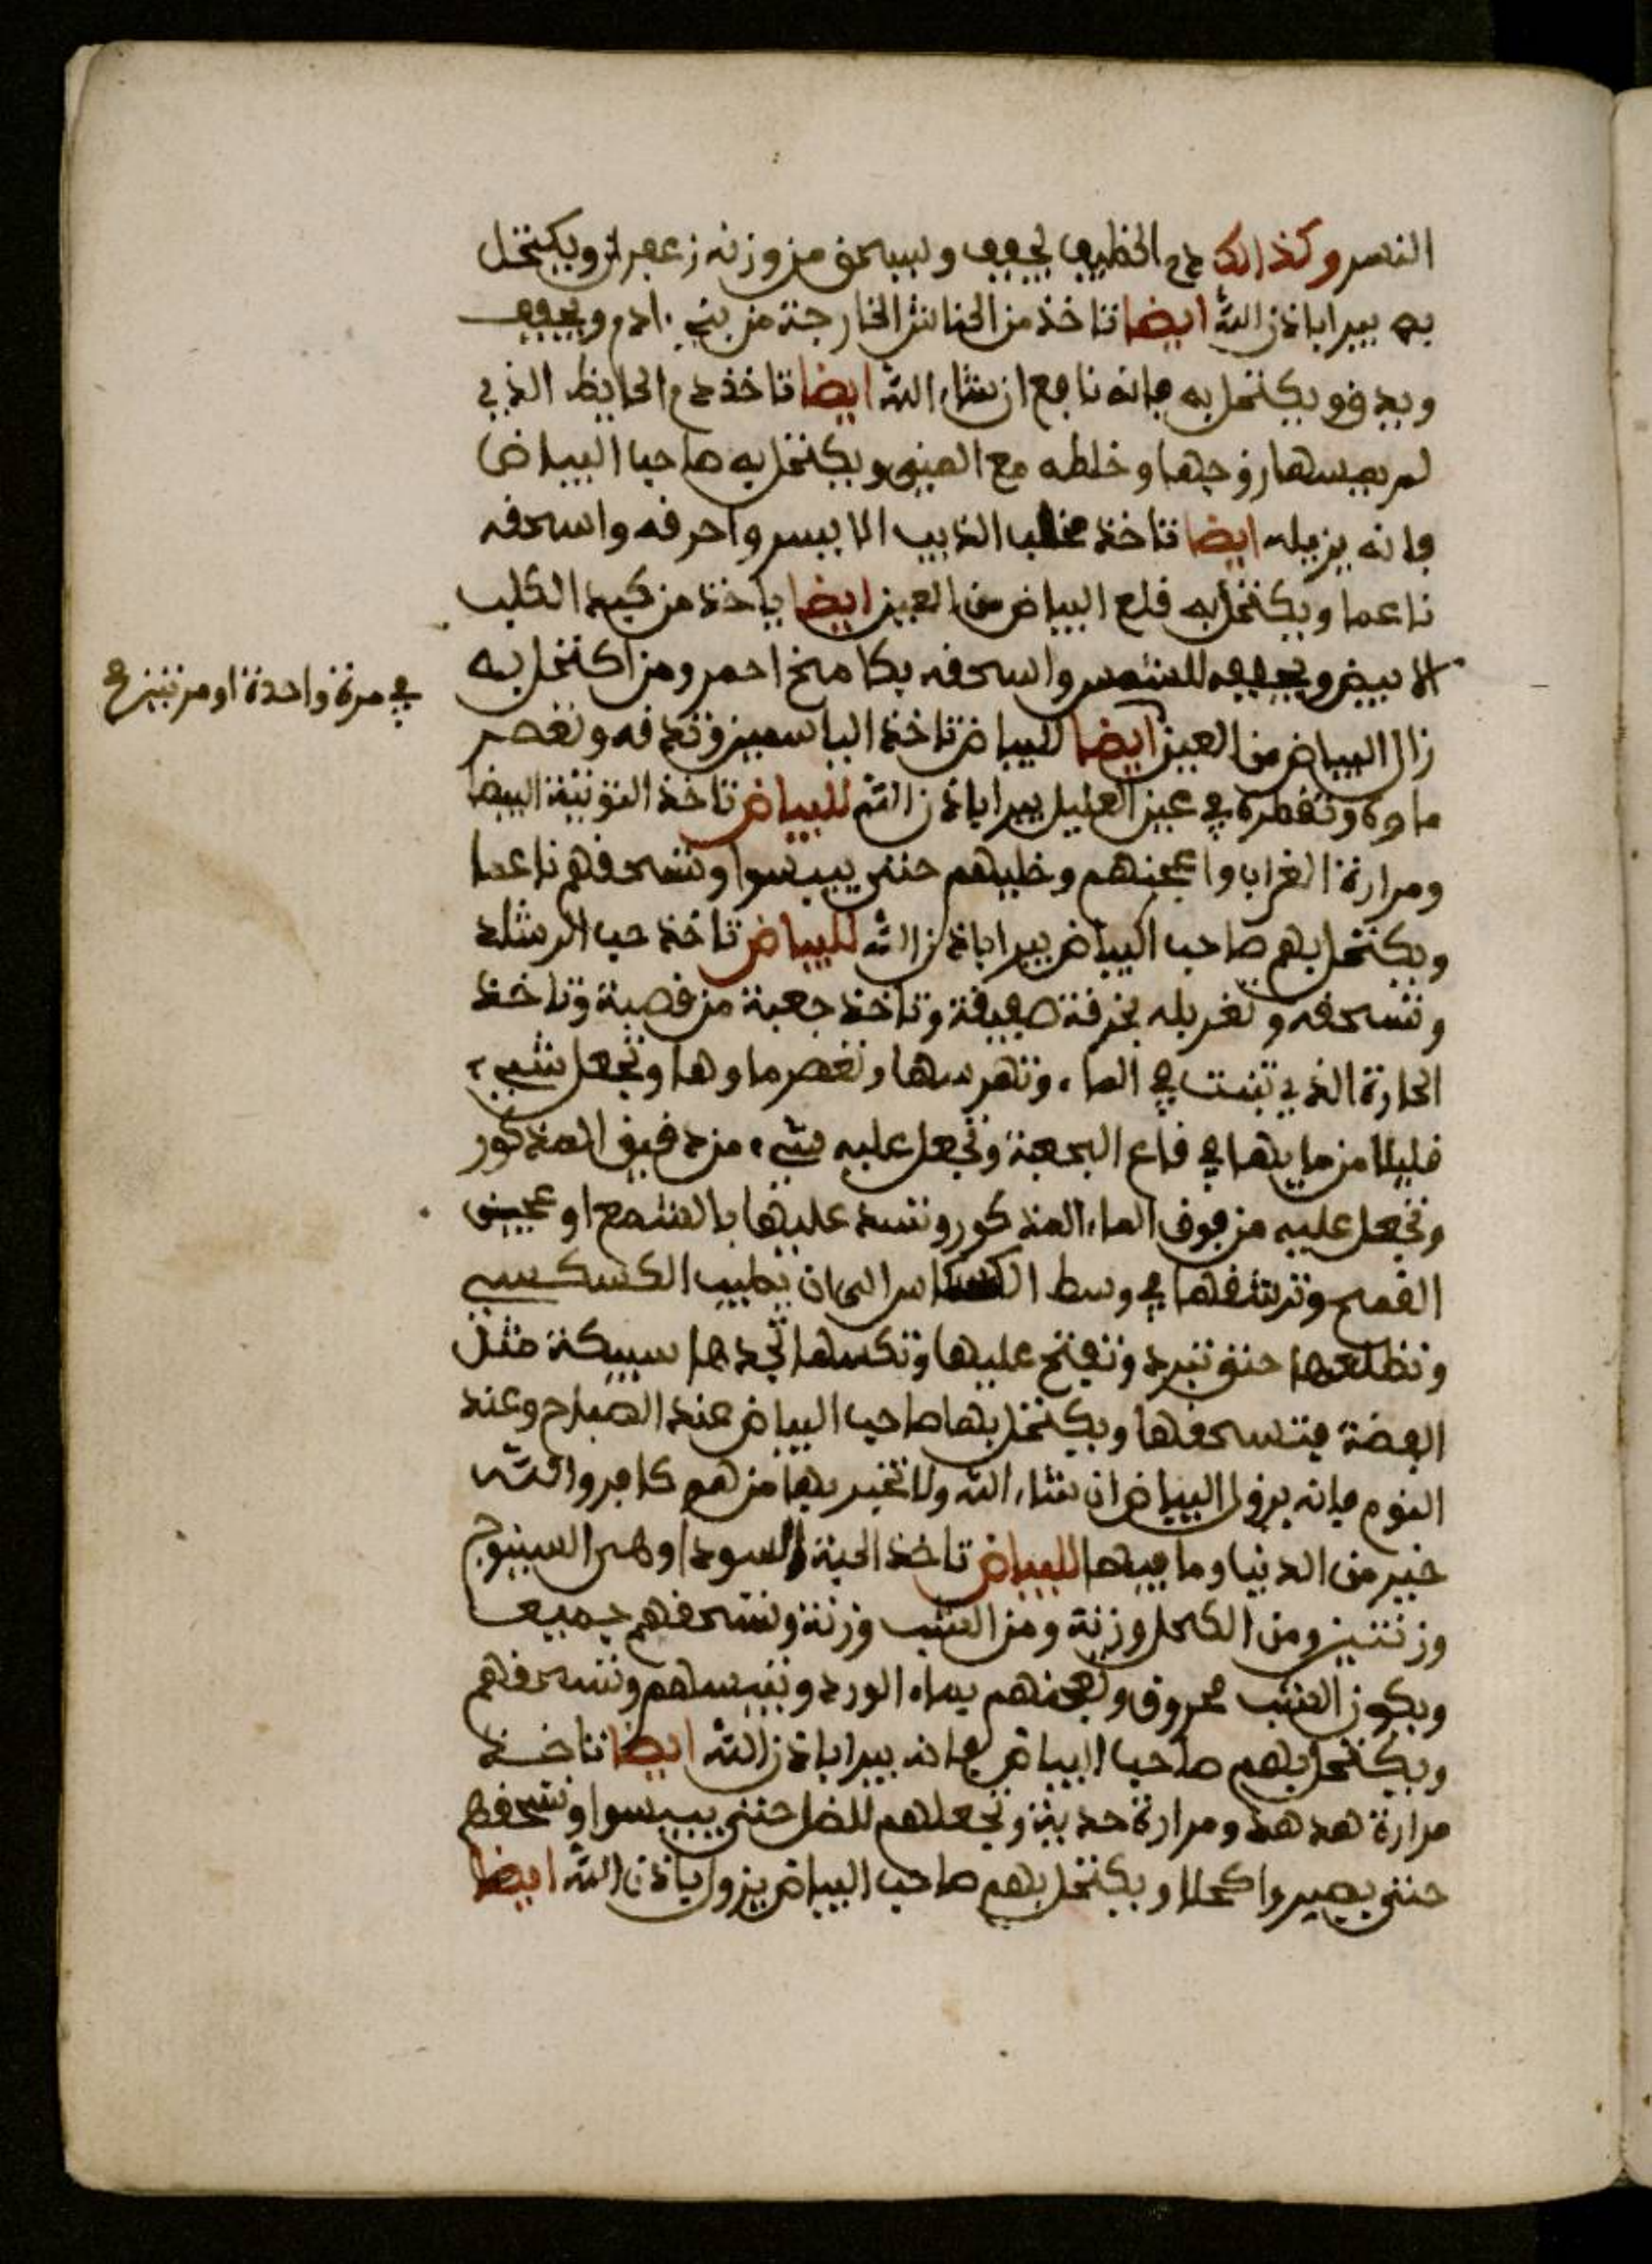 النسر وكذالك دم الخطيف يجفف ويسحق من وزنه زعفران ويكتحل
به يبرا باذن الله ايضا تاخذ من الخنانش الخارجة من بني ادم ويجفف
ويدق ويكتحل به فانه نافع ان شاء الله ايضا تاخذ دم الحايظ الذي
لم يمسها زوجها وخلطه مع المني ويكتحل به صاحب البياض
فانه يزيله ايضا تاخذ مخلب الذيب الايسر واحرقه واسحقه
ناعما ويكتحل به قلع البياض من العين ايضا ياخذ من كبد الكلب
الابيض ويجففه للشمس واسحقه بكامخ احمر ومن اكتحل به
في مرة واحدة او مرتين
زال البياض من العين ايضا للبياض تاخذ الياسمين وتدقه وتعصر
ماوه وتقطره في عين العليل يبرا باذن الله للبياض تاخذ التوتية البيضا
ومرارة الغراب واعجنهم وخليهم حتى ييبسوا وتسحقهم ناعما
ويكتحل بهم صاحب البياض يبرا باذن الله للبياض تاخذ حب الرشاد
وتسحقه وتغربله بخرقة صفيقة وتاخذ جعبة من قصبة وتاخذ
الحارة الذي تنبت في الماء وتهرسها وتعصر ماوها وتجعل شيء
قليلا من مايها في قاع الجعبة وتجعل عليه شيء من دقيق المذكور
وتجعل عليه من فوق الماء المذكور وتسد عليها بالشمع او عجين
القمح وترشقها في وسط الكسكاس الى ان يطيب الكسكسي
وتطلعها حتى تبرد وتفتح عليها وتكسها تجدها سبيكة مثل
الفضة فتسحقها ويكتحل بها صاحب البياض عند الصباح وعند
النوم فانه يزول البياض ان شاء الله ولا تخبر بها من هم كافر والله
خير من الدنيا وما فيها للبياض تاخذ الحبة السودا وهى السينوج
وزنتين ومن الكحل وزنة ومن الشب وزنة وتسحقهم جميعا
ويكون الشب محروق وتعجنهم بماء الورد وتيبسهم وتسحقهم
ويكتحل بهم صاحب البياض فانه يبرا باذن الله ايضا تاخذ
مرارة هدهد ومرارة حدية وتجعلهم للضل حتى ييبسوا وتسحقهم
حتى يصيروا كحلا ويكتحل بهم صاحب البياض يزول باذن الله ايضا